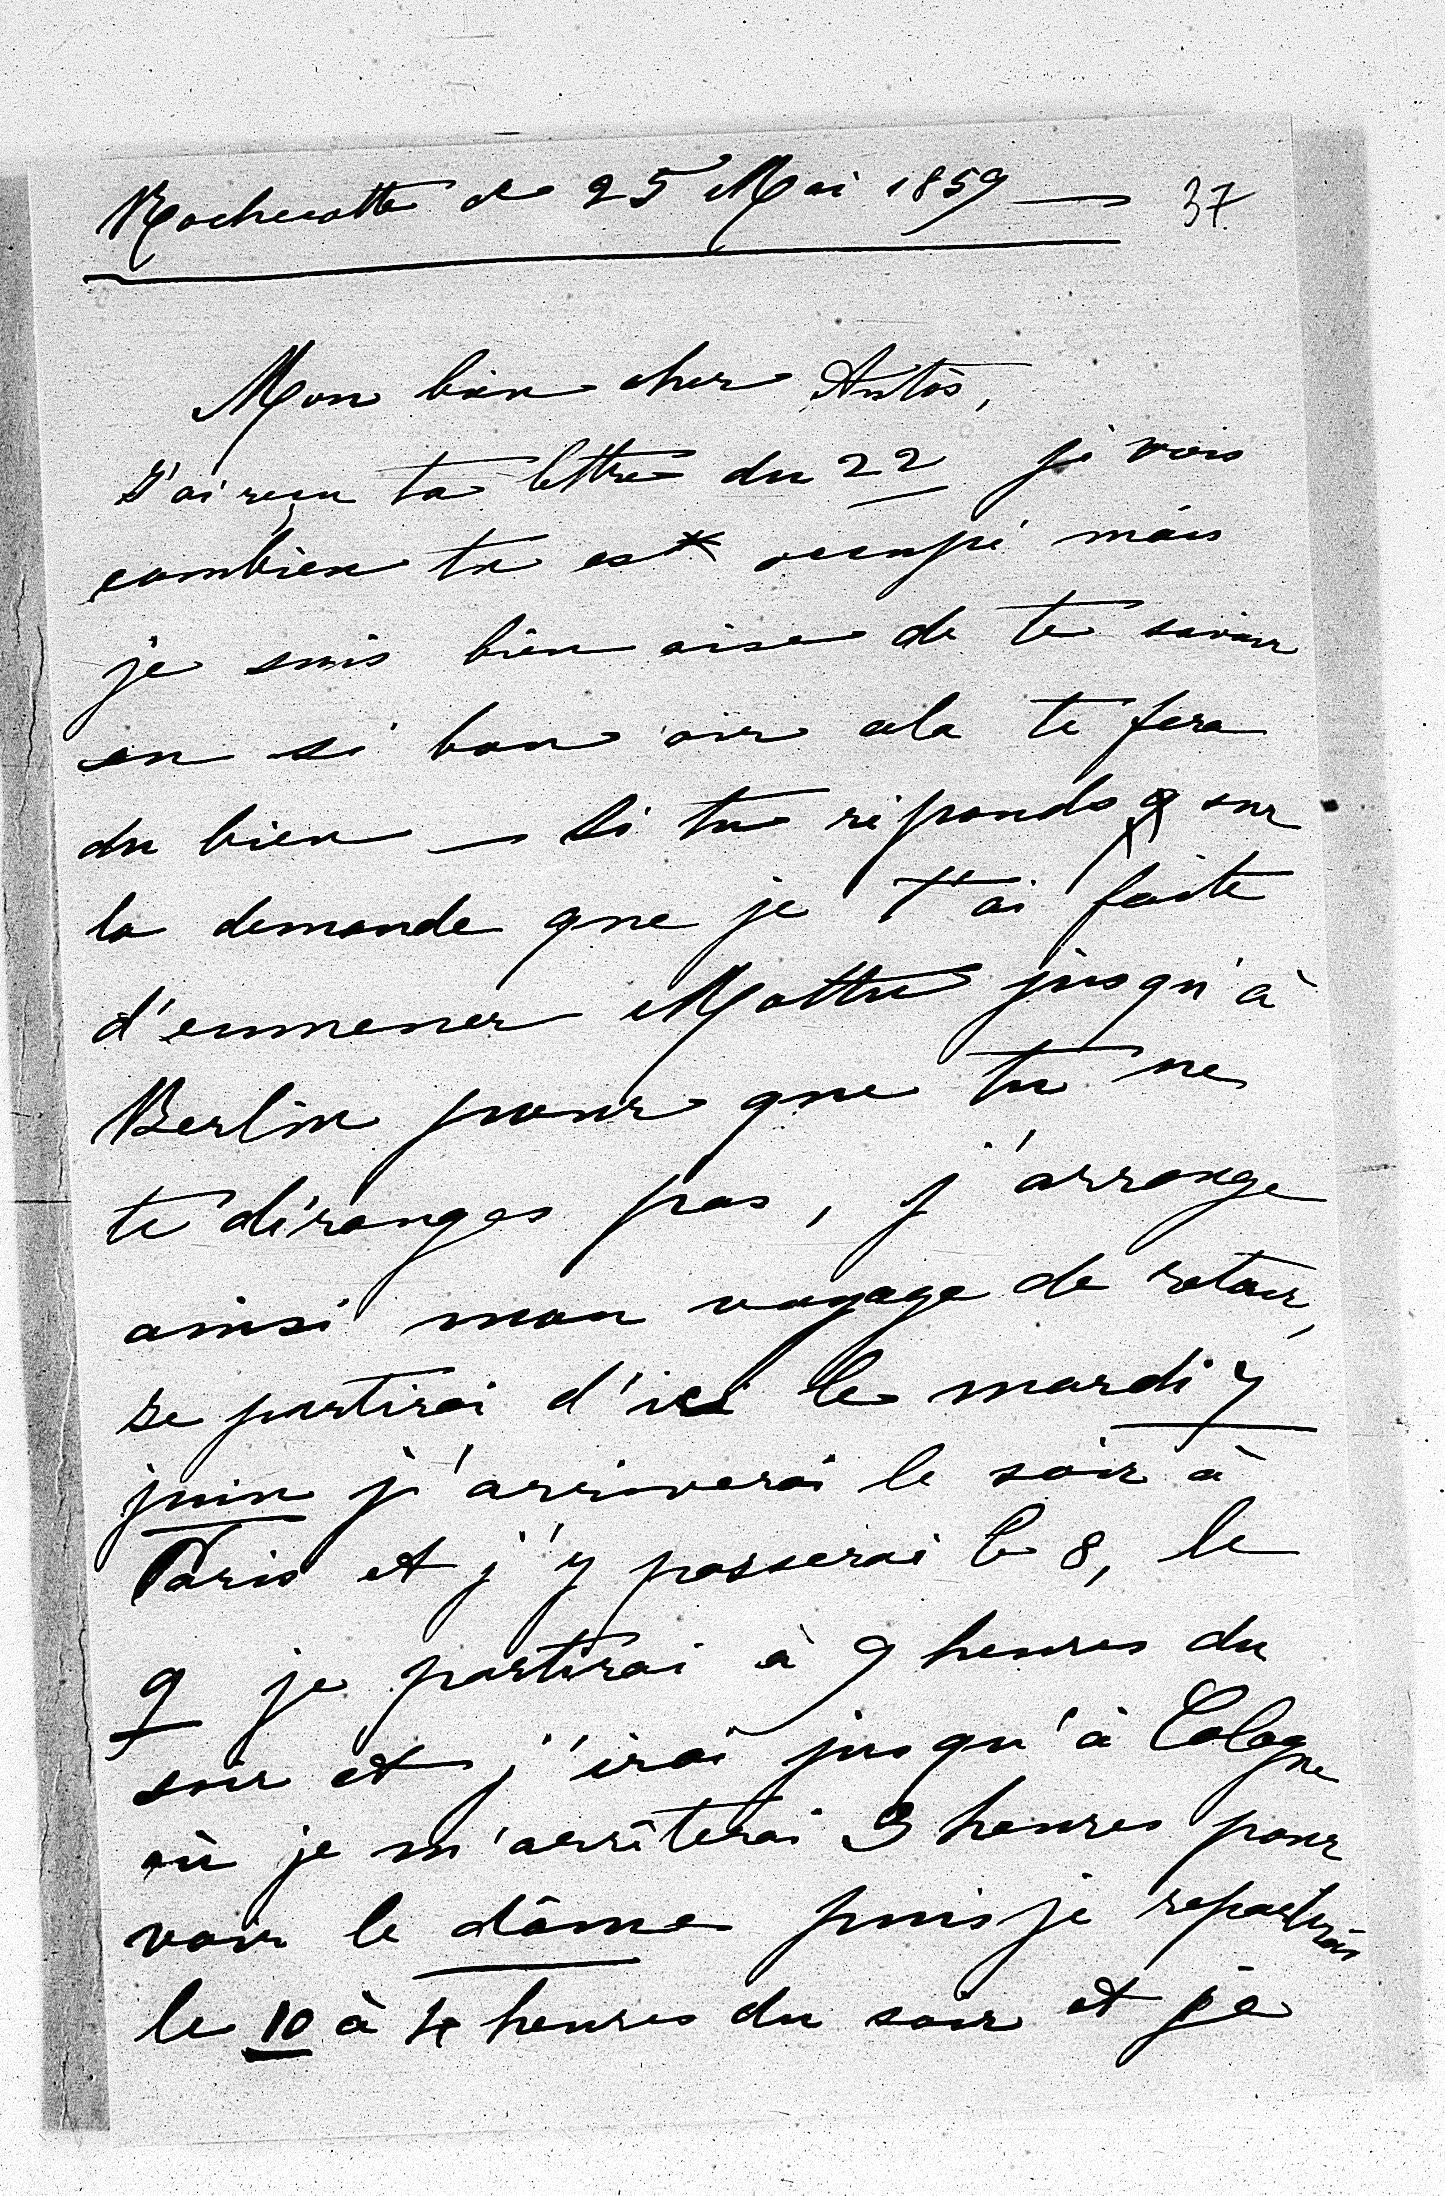 Rochecotte ce 25 Mai 1859 — 37
Mon bien cher Antós,
J'ai reçu ta lettre du 22 je vois
combien tu es occupé mais
je suis bien aise de te savoir
en si bon air cela te fera
du bien — Si tu réponds sur
la demande que je t'ai faite
d'emmener Mattu jusqu'à
Berlin pour que tu ne
te déranges pas, j'arrange
ainsi mon voyage de retour,
Je partirai d'ici le mardi 7
juin j'arriverai le soir à
Paris et j'y passerai le 8, le
9 je partirai à 9 heures du
soir et j'irai jusqu'à Cologne
où je m'arrêterai 3 heures pour
voir le dôme puis je repartirai
le 10 à 4 heures du soir et je